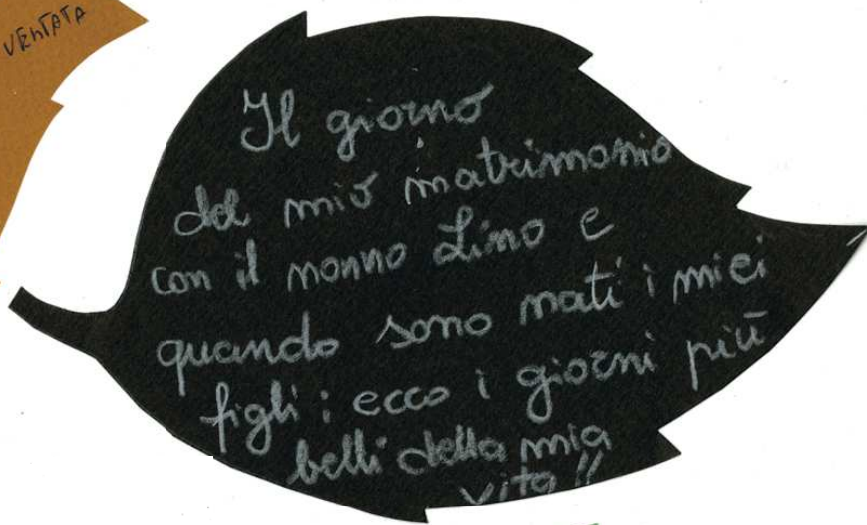 VENTATA
Il giorno
del mio matrimonio
con il nonno Lino e
quando sono nati i miei
figli: ecco i giorni più
belli della mia
vita!!